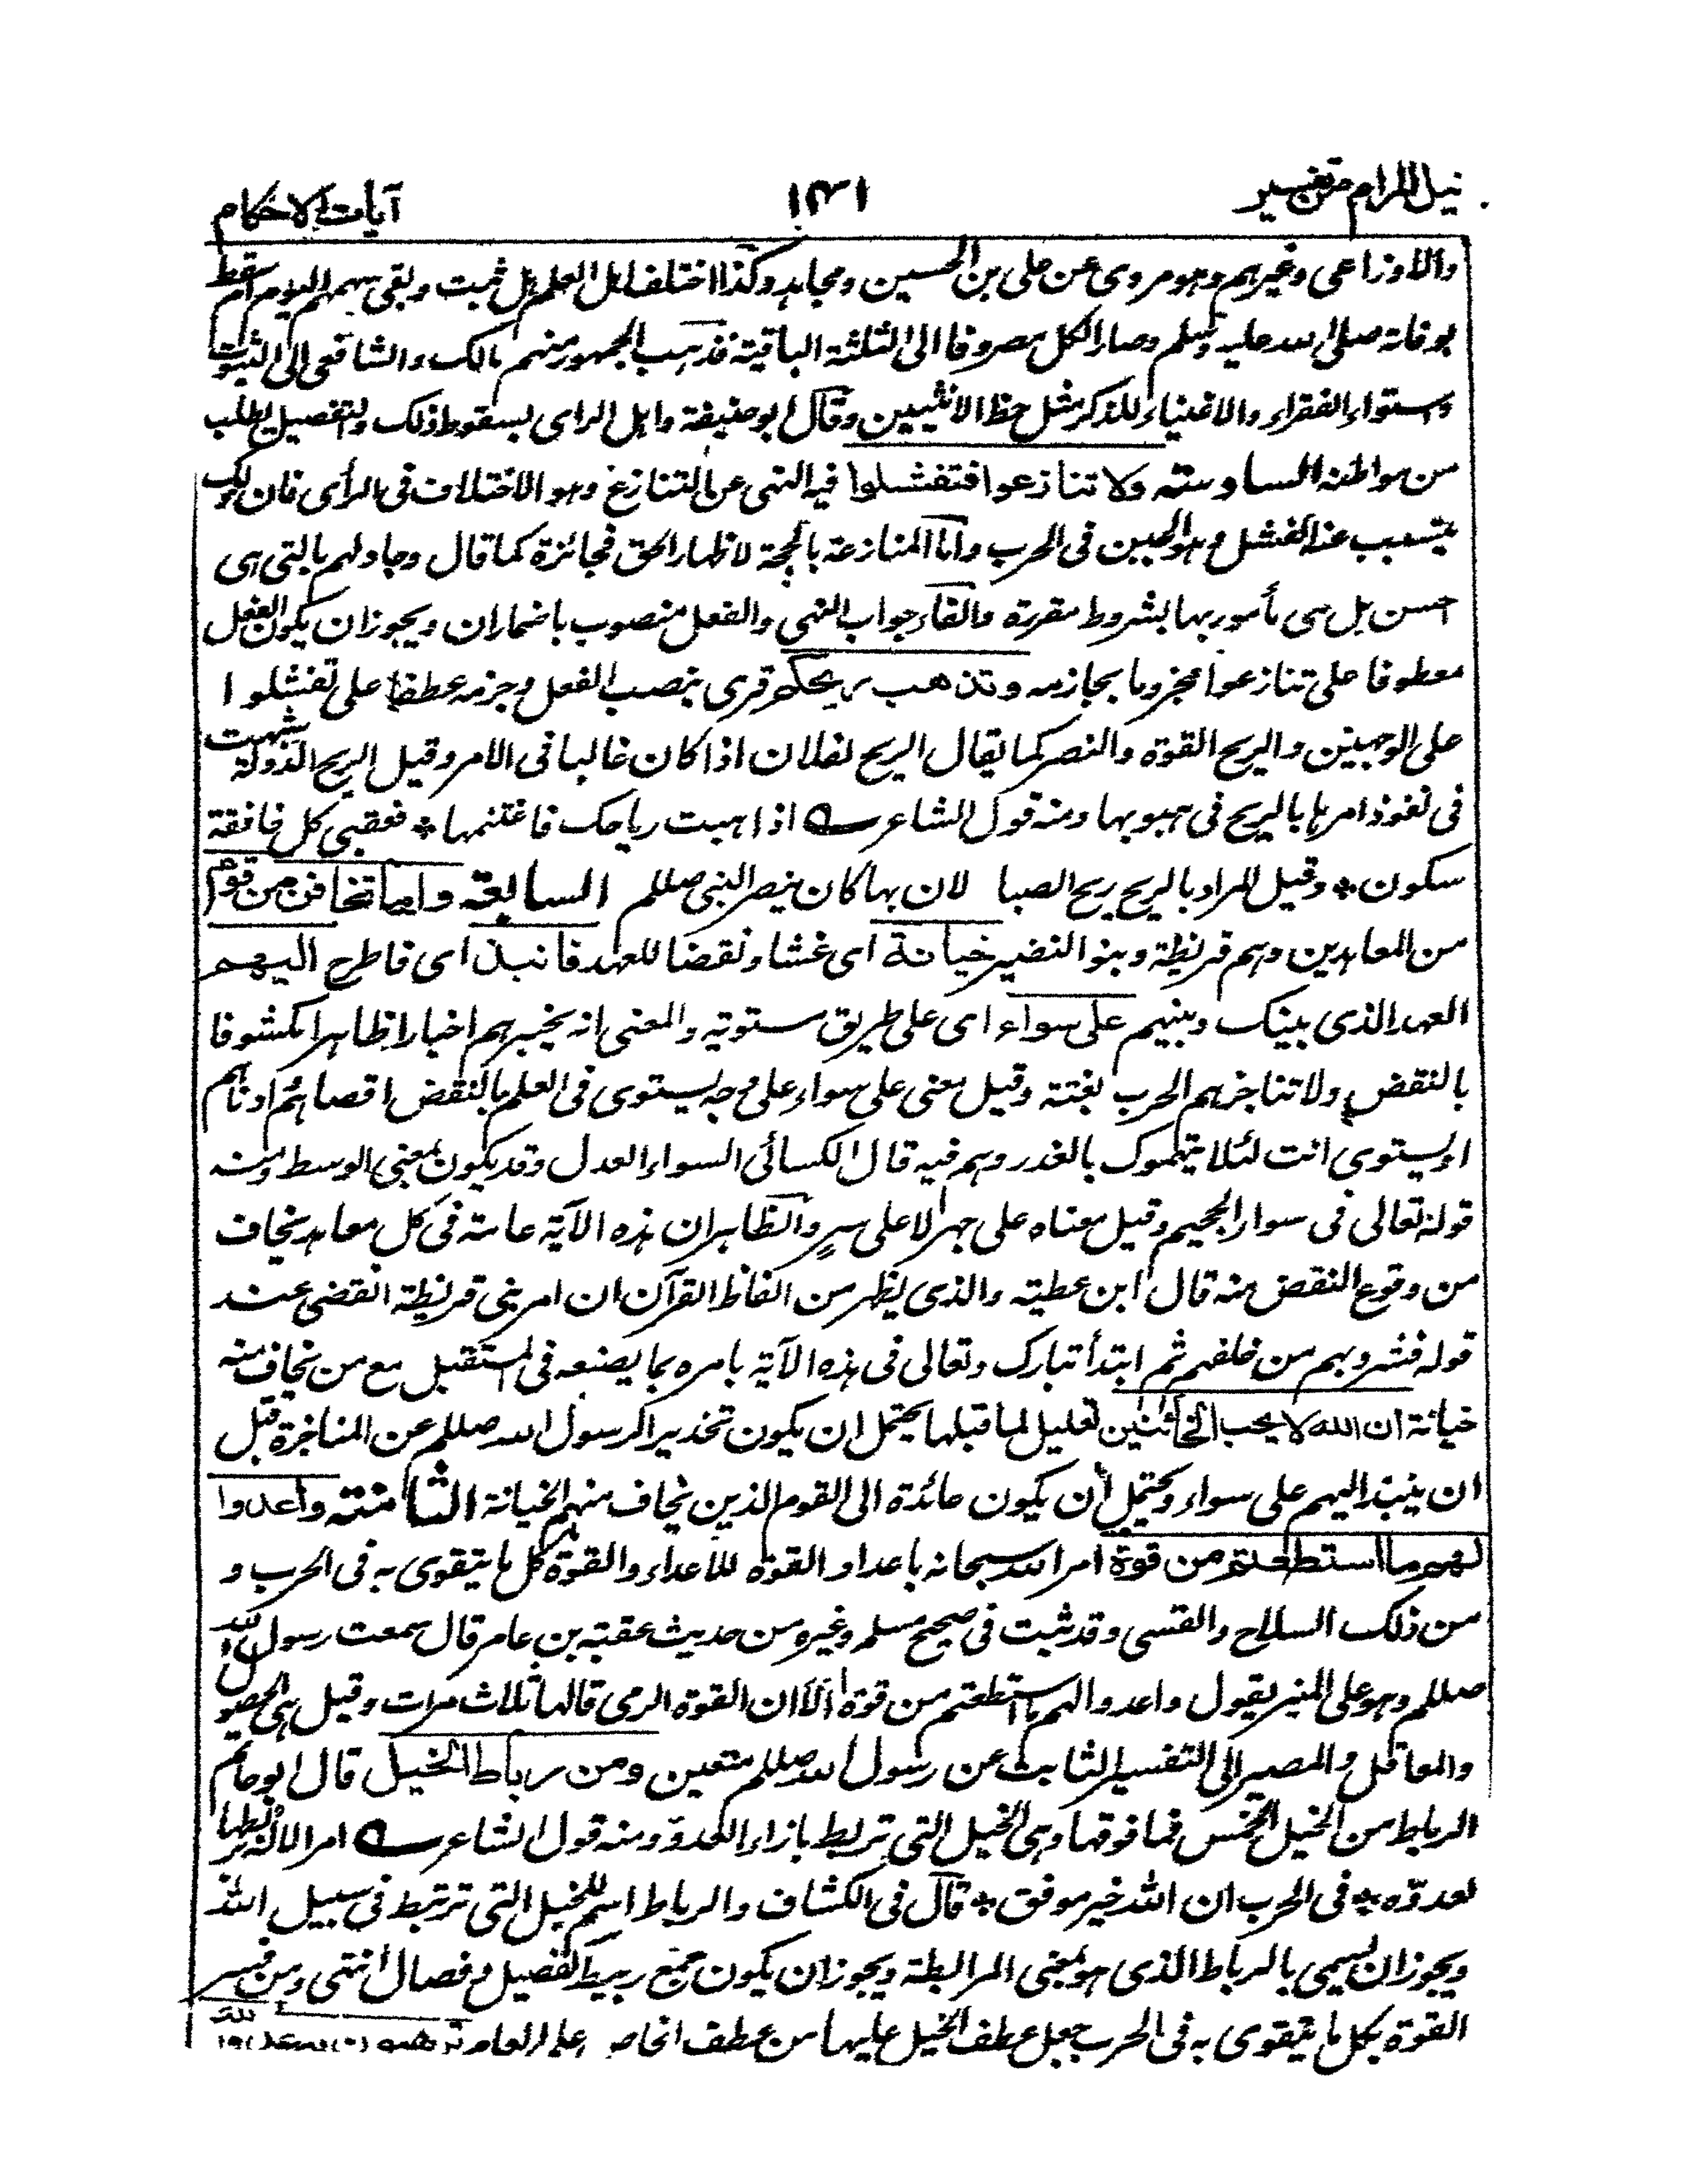 نيل المرام من تفسير ١٣١ آيات الاحكام
والاوزاعى وغيرهم وهو مروى عن على بن الحسين ومجاهد وكذا اختلف اهل العلم هل ثبت وبقى سهمهم اليوم ام سقط
بوفاته صلى الله عليه وسلم وصار الكل مصروفا الى الثلثة الباقية فذهب الجمهور منهم مالك والشافعى الى الثبوت
واستواء الفقراء والاغنياء للذكر مثل حظ الانثيين وقال ابو حنيفة واهل الراى بسقوط ذلك والتفصيل يطلب
من مواطنه السادسة ولا تنازعوا فتفشلوا فيه النهى عن التنازع وهو الاختلاف فى الرأى فان ذلك
يتسبب عنه الفشل وهو الجبن فى الحرب واما المنازعة بالحجة لاظهار الحق فجائزة كما قال وجادلهم بالتى هى
احسن بل هى مأمور بها بشروط مقررة والفاء جواب النهى والفعل منصوب باضمار ان ويجوز ان يكون الفعل
معطوفا على تنازعوا مجزوما بجازمه وتذهب ريحكم قرى بنصب الفعل وجزمه عطفا على تفشلوا
على الوجهين والريح القوة والنصر كما يقال الريح لفلان اذا كان غالبا فى الامر وقيل الريح الدولة شبهت
فى نفوذ امرها بالريح فى هبوبها ومنه قول الشاعر اذا هبت رياحك فاغتنمها * فعقبى كل خافقة
سكون * وقيل المراد بالريح ريح الصبا لان بها كان ينصر النبى صللم السابعة واما تخافن من قوم
من المعاهدين وهم قريظة وبنو النضير خيانة اى غشا ونقضا للعهد فانبذ اى فاطرح اليهم
العهد الذى بينك وبينهم على سواء اى على طريق مستوية والمعنى انه يخبرهم اخبارا ظاهرا مكشوفا
بالنقض ولا تناجزهم الحرب بغتة وقيل معنى على سواء على وجه يستوى فى العلم بالنقض اقصاهم وادناهم
او يستوى انت لئلا يتهموك بالغدر وهم فيه قال الكسائى السواء العدل وقد يكون بمعنى الوسط ومنه
قوله تعالى فى سواء الجحيم وقيل معناه على جهر لا على سر والظاهر ان هذه الآية عامة فى كل معاهد يخاف
من وقوع النقض منه قال ابن عطية والذى يظهر من الفاظ القرآن ان امر بنى قريظة انقضى عند
قوله فشرد بهم من خلفهم ثم ابتدأ تبارك وتعالى فى هذه الآية يامره بما يصنعه فى المستقبل مع من يخاف منه
خيانة ان الله لا يحب الخائنين تعليل لما قبلها يحتمل ان يكون تحذيرا لرسول الله صللم عن المناجزة قبل
ان ينبذ اليهم على سواء ويحتمل أن يكون عائدة الى القوم الذين يخاف منهم الخيانة الثامنة واعدوا
لهم ما استطعتم من قوة امر الله سبحانه باعداد القوة للاعداء والقوة كل ما يتقوى به فى الحرب و
من ذلك السلاح والقسى وقد ثبت فى صحيح مسلم وغيره من حديث عقبة بن عامر قال سمعت رسول الله
صللم وهو على المنبر يقول واعدوا لهم ما استطعتم من قوة ألا ان القوة الرمى قالها ثلاث مرات وقيل هى الحصون
والمعاقل والمصير الى التفسير الثابت عن رسول الله صللم متعين ومن رباط الخيل قال ابو حاتم
الرباط من الخيل الخمس فما فوقها وهى الخيل التى تربط بازاء العدو ومنه قول الشاعر امر الاله بربطها
لعدوه * فى الحرب ان الله خير موفق * قال فى الكشاف والرباط اسم للخيل التى ترتبط فى سبيل الله
ويجوز ان يسمى بالرباط الذى هو بمعنى المرابطة ويجوز ان يكون جمع ربيط كفصيل وفصال انتهى ومن فسر
القوة بكل ما يتقوى به فى الحرب جعل عطف الخيل عليها من عطف الخاص على العام ترهبون به عدو الله